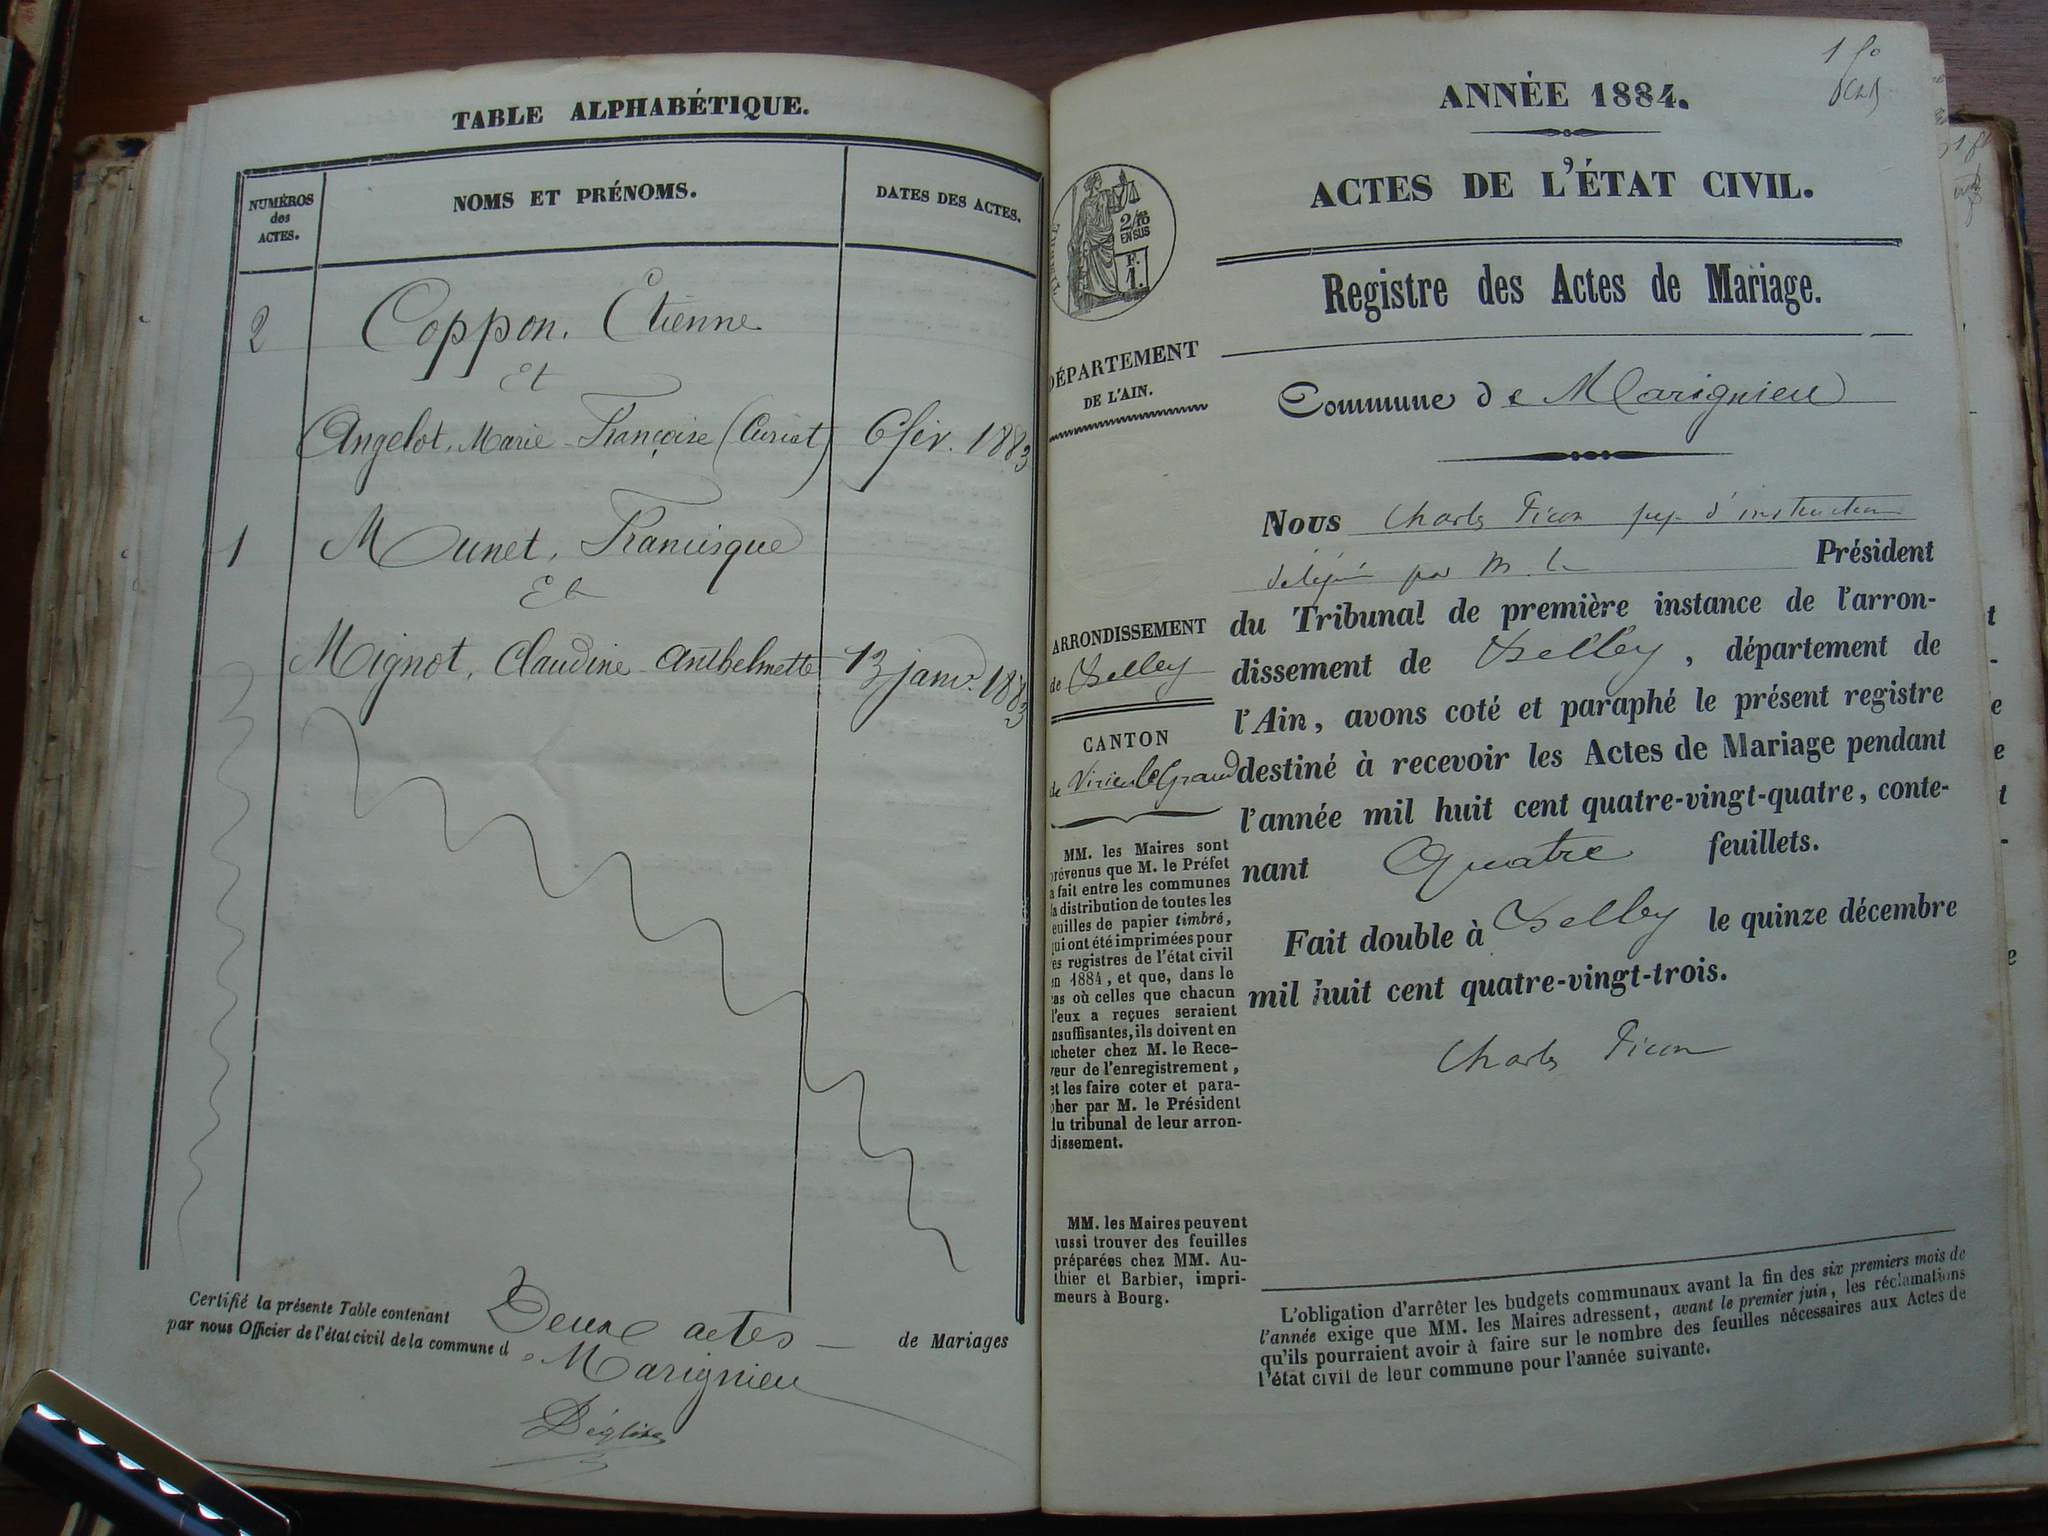 TABLE ALPHABÉTIQUE.
NUMÉROS
des
ACTES.
NOMS ET PRÉNOMS.
DATES DES ACTES.
2
Coppon, Etienne
et
Angelot, Marie-Françoise (Curiat) 6 fév. 1883
1
Munet, Francisque
Et
Mignot, Claudine Anthelmette 13 janv. 1883
Certifié la présente Table contenant Deux actes de Mariages
par nous Officier de l'état civil de la commune de Marignieu
ANNÉE 1884.
ACTES DE L'ÉTAT CIVIL.
2/10
EN SUS
F.
1.
Registre des Actes de Mariage.
DÉPARTEMENT
DE L'AIN.
Commune de Marignieu
Nous Charles Picon juge d'instruction
délégué par M. le Président
du Tribunal de première instance de l'arron-
dissement de Belley, département de
l'Ain, avons coté et paraphé le présent registre
destiné à recevoir les Actes de Mariage pendant
l'année mil huit cent quatre-vingt-quatre, conte-
nant Quatre feuillets.
Fait double à Belley le quinze décembre
mil huit cent quatre-vingt-trois.
Charles Picon
ARRONDISSEMENT
de Belley
CANTON
de Virieu le Grand
MM. les Maires sont
prévenus que M. le Préfet
a fait entre les communes
la distribution de toutes les
feuilles de papier timbré,
qui ont été imprimées pour
les registres de l'état civil
en 1884, et que, dans le
cas où celles que chacun
d'eux a reçues seraient
insuffisantes, ils doivent en
acheter chez M. le Rece-
veur de l'enregistrement,
et les faire coter et para-
pher par M. le Président
du tribunal de leur arron-
dissement.
MM. les Maires peuvent
aussi trouver des feuilles
préparées chez MM. Au-
thier et Barbier, impri-
meurs à Bourg.
L'obligation d'arrêter les budgets communaux avant la fin des six premiers mois de
l'année exige que MM. les Maires adressent, avant le premier juin, les réclamations
qu'ils pourraient avoir à faire sur le nombre des feuilles nécessaires aux Actes de
l'état civil de leur commune pour l'année suivante.